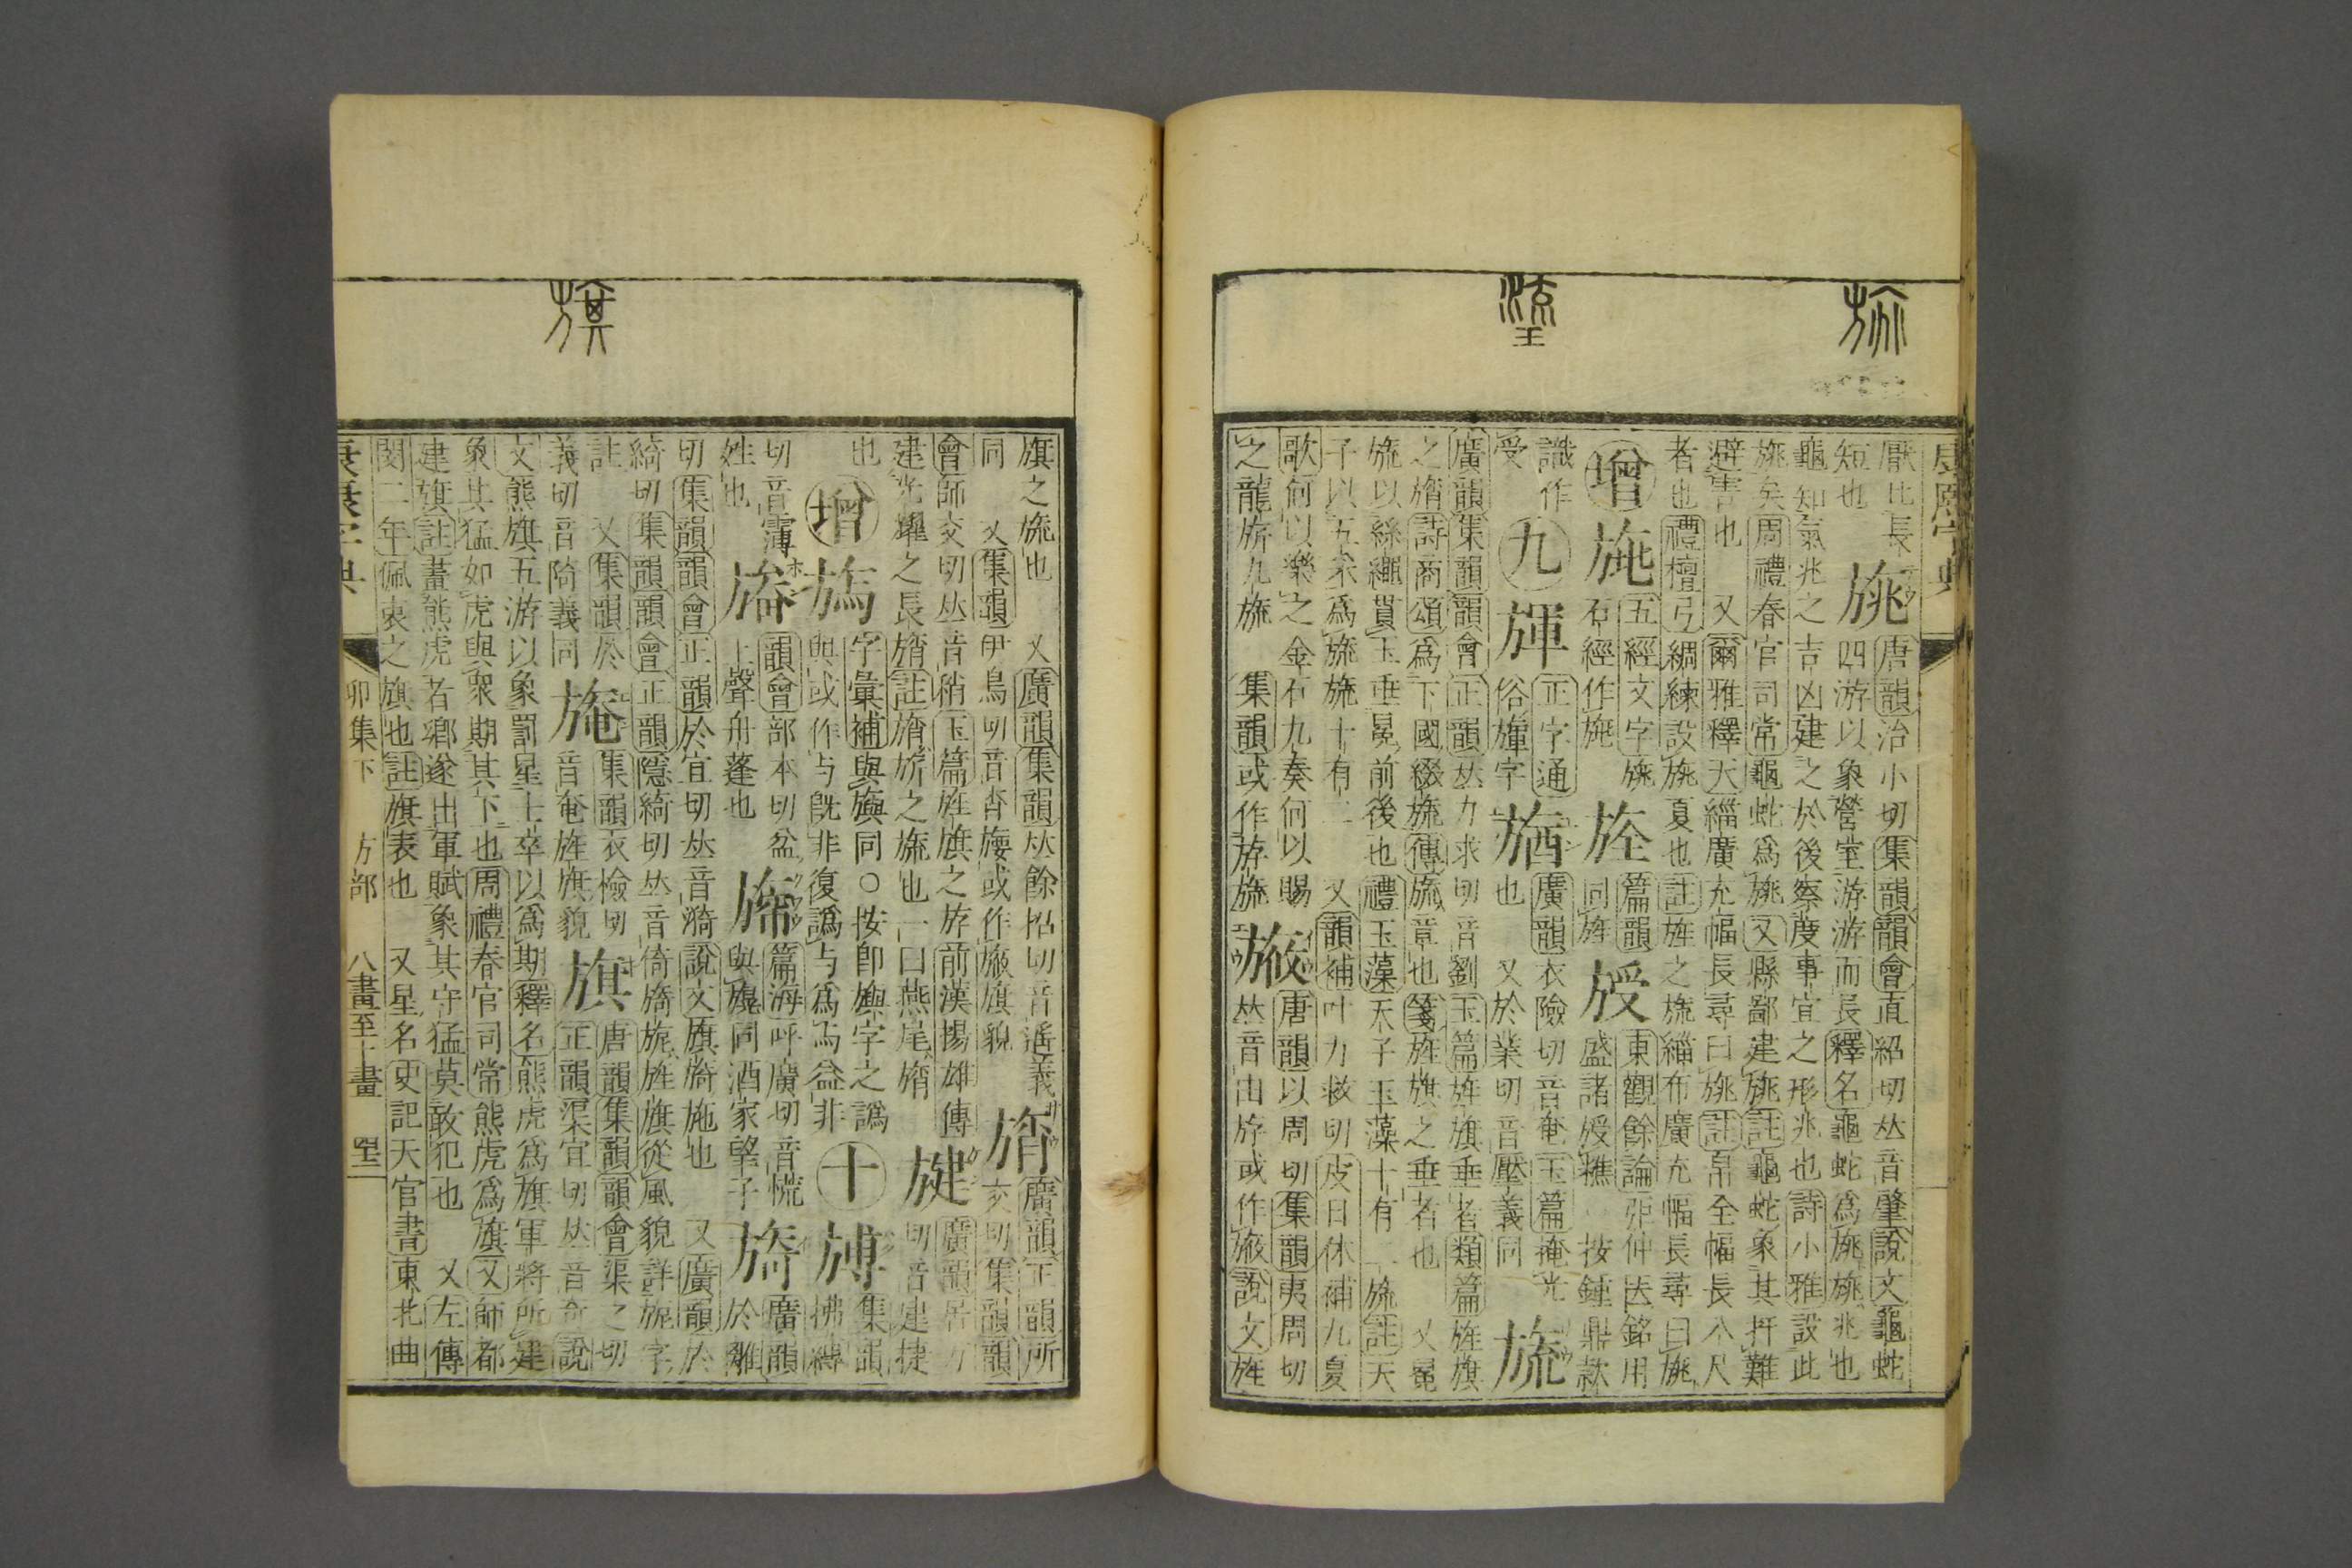 康熙字典
厭比長
短也
旐
唐韻治小切集韻韻會直紹切𠀤音肇說文龜蛇
四游以象營室游游而長釋名龜蛇爲旐旐兆也
龜知氣兆之吉凶建之於後察度事宜之形兆也詩小雅設此
旐矣周禮春官司常龜蛇爲旐又縣鄙建旐註龜蛇象其扞難
避害也 又爾雅釋天緇廣充幅長尋曰旐註帛全幅長八尺
者也禮檀弓綢練設旐夏也註旌之旒緇布廣充幅長尋曰旐
增
五經文字旐
石經作旐
篇韻
同旌
東觀餘論弡仲医銘用
盛諸 樵 按鍾鼎款
識作
受
九
正字通
俗 字
廣韻衣險切音奄玉篇掩光
也 又於業切音壓義同
旒
廣韻集韻韻會正韻𠀤力求切音劉玉篇旌旗垂者類篇旌旗
之旓詩商頌爲下國綴旒傳旒章也箋旌旗之垂者也 又冕
旒以絲繩貫玉垂冕前後也禮玉藻天子玉藻十有二旒註天
子以五采爲旒旒十有二 又韻補叶力救切皮日休補九夏
歌何以樂之金石九奏何以賜
之龍旂九旒 集韻或作游旒
唐韻以周切集韻夷周切
𠀤音由斿或作 說文旌
旗之旒也 又廣韻集韻𠀤餘招切音遙義
同 又集韻伊鳥切音杳 或作 旗貌
旓
廣韻正韻所
交切集韻韻
會師交切𠀤音稍玉篇旌旗之斿前漢揚雄傳
建光燿之長旓註旓旂之旒也一曰燕尾旓
廣韻居
切音建捷
也
增
字彙補與旟同○按卽旟字之譌
與或作与旣非復譌与爲 益非
十
集韻
拂縛
切音
韻會部本切盆
上聲舟蓬也
篇海呼廣切音慌
與 同酒家望子
旖
廣韻
於離
姓也
切集韻韻會正韻於宜切𠀤音漪說文旗旖施也 又廣韻於
綺切集韻韻會正韻隱綺切𠀤音倚旖旎旌旗從風貌詳旎字
註 又集韻於
義切音陭義同
集韻衣檢切
音奄旌旗貌
旗
唐韻集韻韻會渠之切
正韻渠宜切𠀤音奇說
文熊旗五游以象罰星士卒以爲期釋名熊虎爲旗軍將所建
象其猛如虎與衆期其下也周禮春官司常熊虎爲旗又師都
建旗註畫熊虎者鄉遂出軍賦象其守猛莫敢犯也 又左傳
閔二年佩衷之旗也註旗表也 又星名史記天官書東北曲
康熙字典
卯集下 方部 八畫至十畫